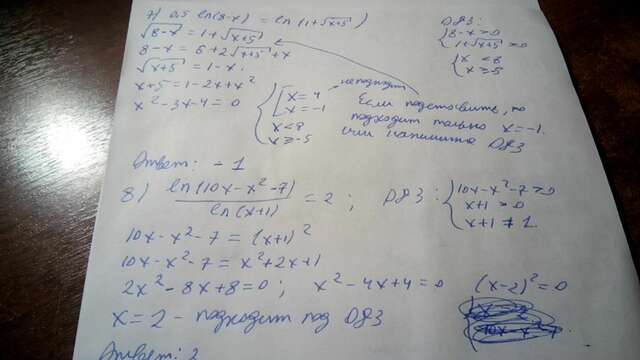 7) 0,5 ln(8-x) = ln(1+√(x+5))
√(8-x) = 1+√(x+5)
8-x = 6+2√(x+5)+x
√(x+5) = 1-x.
x+5 = 1-2x+x²
x²-3x-4=0
{ [ x=4 → не подходит
x=-1
x<8
x≥-5
ОДЗ:
{ 8-x>0
1+√(x+5)>0
{ x<8
x≥-5
Если подставить, то
подходит только x=-1.
или напишите ОДЗ
Ответ: -1
8) ln(10x-x²-7)/ln(x+1) = 2 ; ОДЗ: { 10x-x²-7>0
x+1>0
x+1≠1.
10x-x²-7 = (x+1)²
10x-x²-7 = x²+2x+1
2x²-8x+8=0 ; x²-4x+4=0 (x-2)²=0
x=2 - подходит под ОДЗ
Ответ: 2